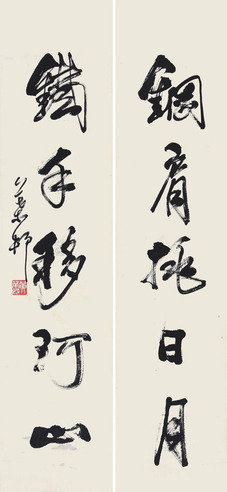 鋼肩挑日月
鐵手移河山